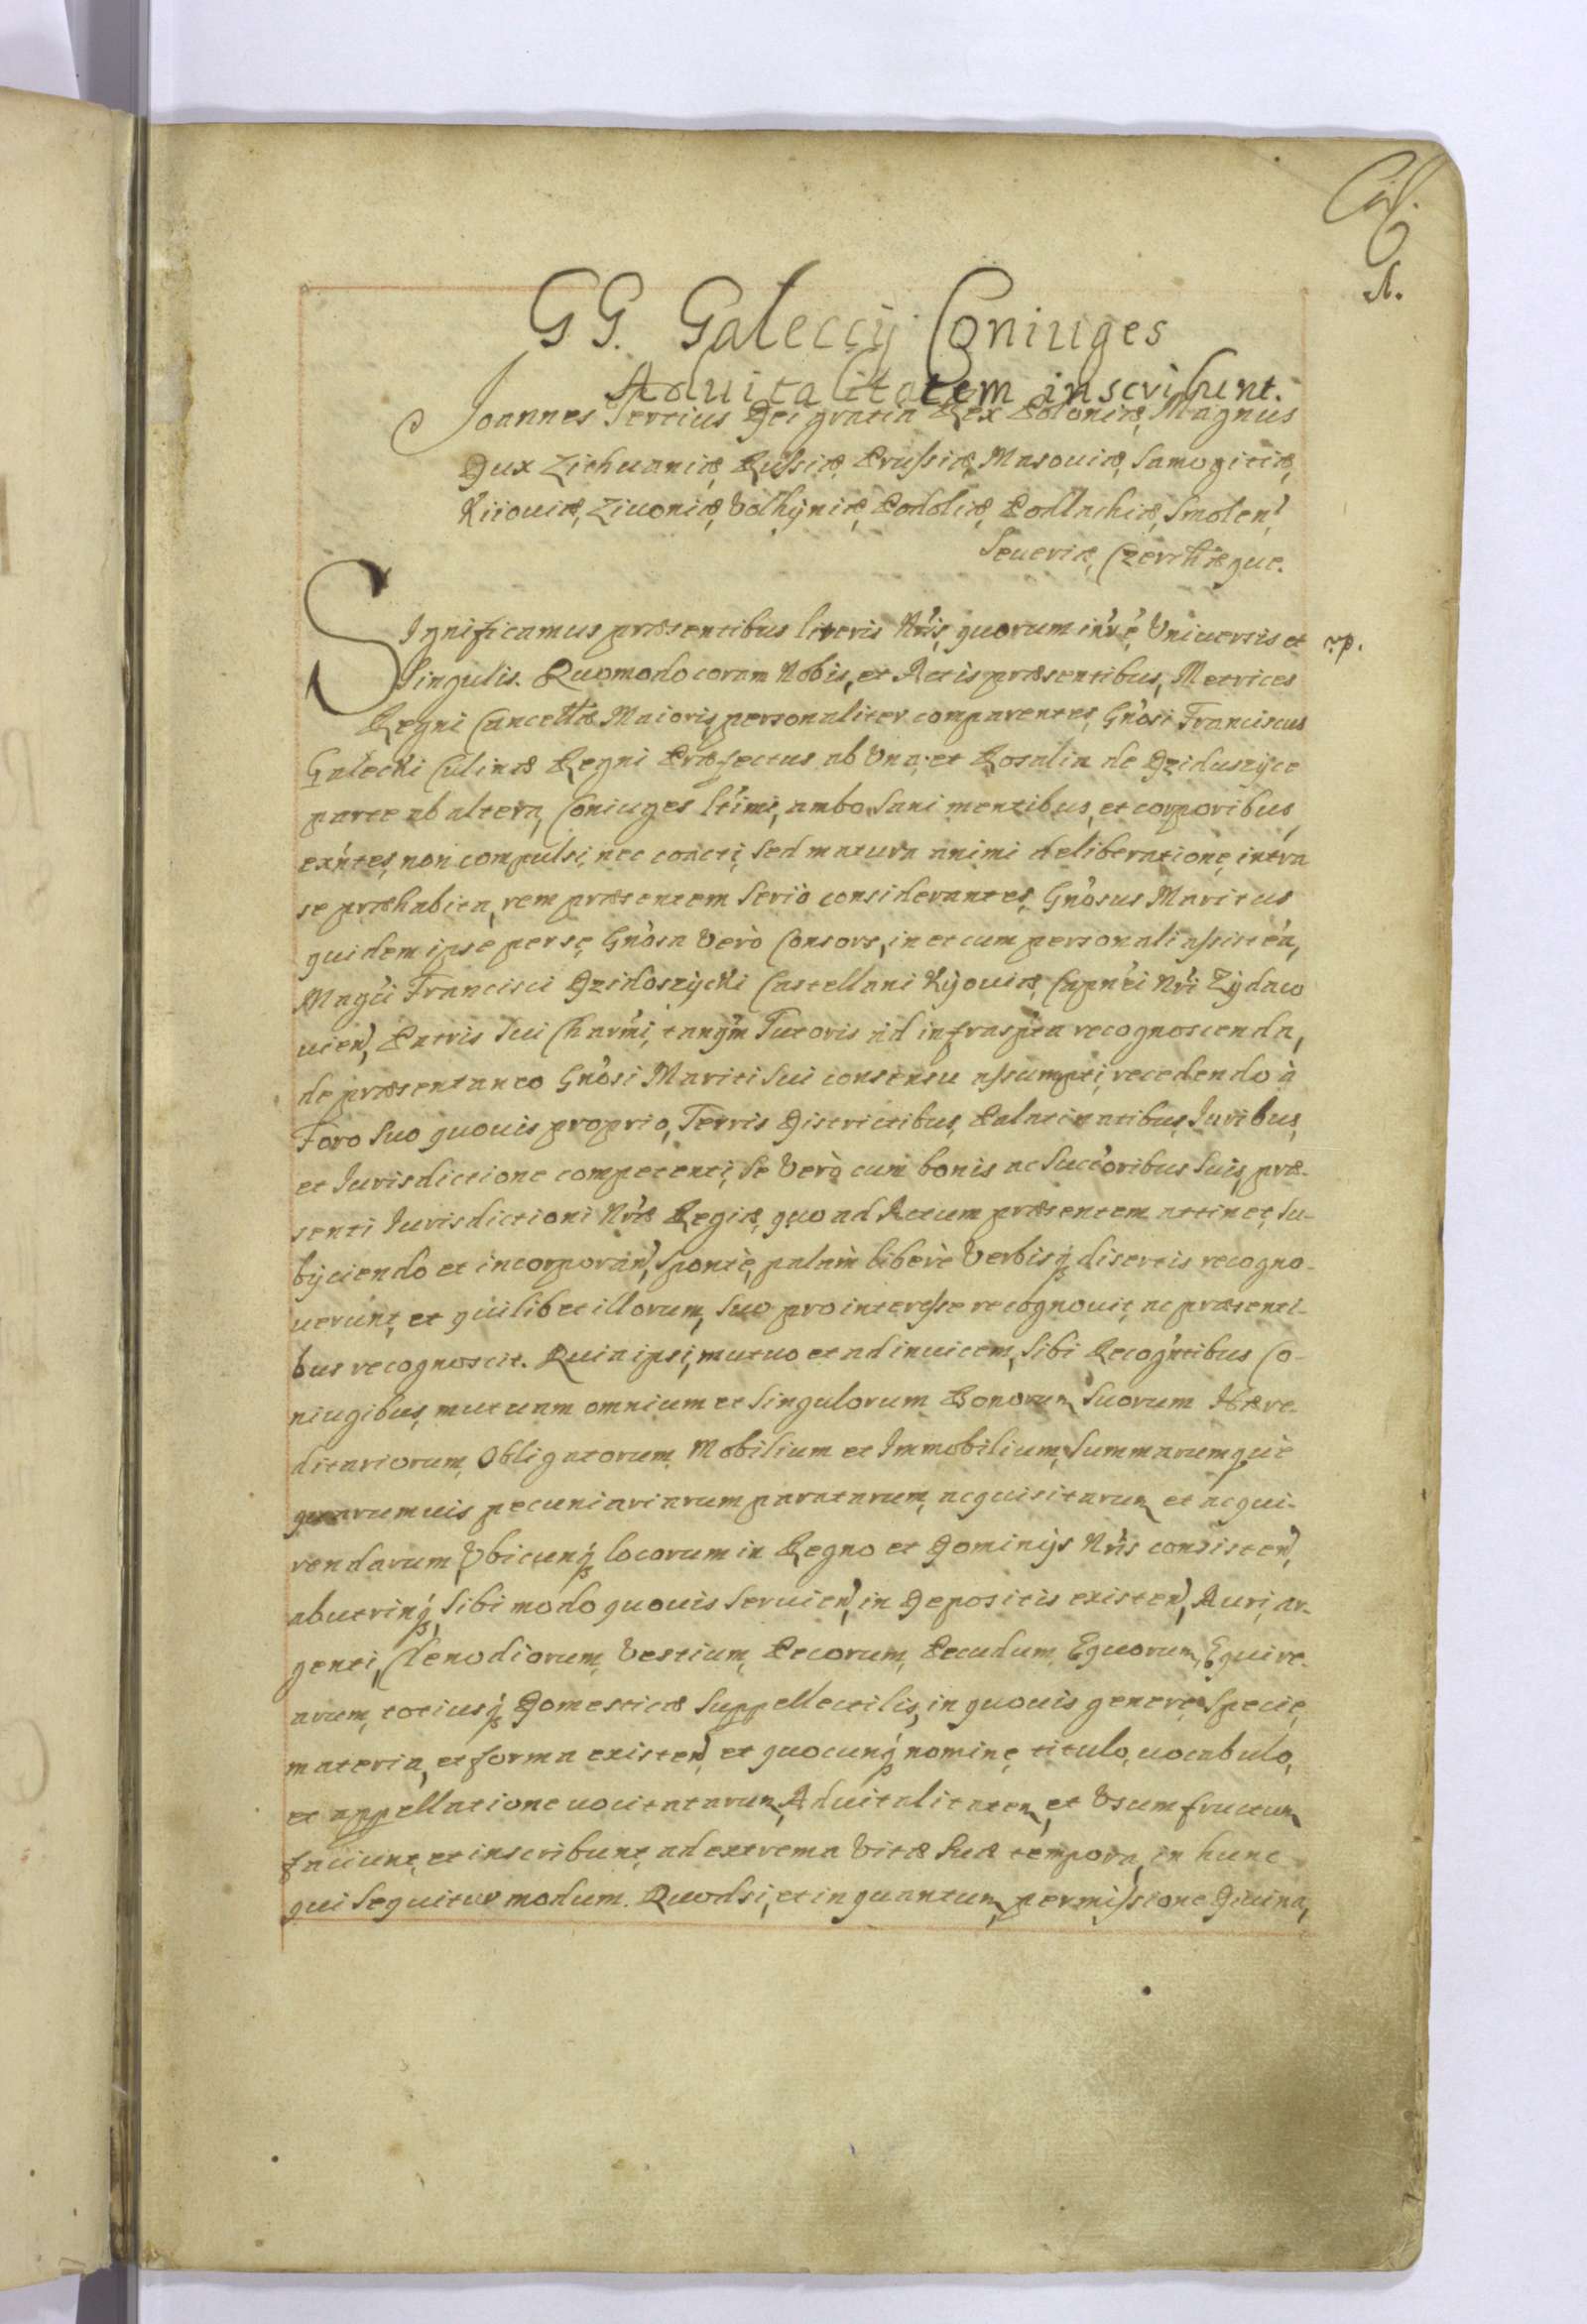 1.
GG. Galeccÿ Coniuges
Aduitalitatem inscribunt.
Joannes Tertius Dei gratia Rex Poloniæ, Magnus
Dux Lithuaniæ, Russiæ, Prussiæ, Masouiæ, Samogitiæ,
Kiiouiæ, Liuoniæ, Volhÿniæ, Podoliæ, Podlachiæ, Smolen,
Seueriæ, Czernihæque.
Significamus præsentibus literis Nr̃is, quorum int̃e, Vniuersis et
Singulis. Quomodo coram Nobis, et Actis præsentibus, Metrices
Regni Cancellæ Maioris, personaliter comparentes, Gñosi Franciscus
Gałecki Culinæ Regni Præfectus ab Vna, et Rosalia de Dziduszÿce
parte ab altera, Coniuges ltimi, ambo Sani mentibus, et corporibus
exñtes, non compulsi, nec coacti, sed matura animi deliberatione, intra
se præhabita, rem præsentem Seriò considerantes, Gñosus Maritus
quidem ipse per se, Gñosa Verò Consors, in et cum personali assisteã,
Magci Francisci Dzidoszÿcki Castellani Kÿouiæ, Capnei Nri Zÿdaco
uien, Patris Sui Charmi, tanqm Tutoris ad infrascpta recognoscenda,
de præsentaneo Gñosi Mariti Sui consensu assumpti, recedendo à
Foro Suo quouis proprio, Terris Districtibus, Palatinatibus, Iuribus,
et Iurisdictione competenti, Se Verò cum bonis ac Succoribus Suis, præ-
senti Iurisdictioni Nræ Regiæ, quo ad Actum præsentem attinet, Su-
bÿciendo et incorporan, Spontè, palàm liberè Verbisq disertis recogno-
uerunt, et quilibet illorum, Suo pro interesse recognouit, ac præsenti-
bus recognoscit. Quia ipsi, mutuo et ad inuicem, Sibi Recogntibus Co-
niugibus, mutuam omnium et Singulorum Bonorum Suorum Hære-
ditariorum, Obligatorum, Mobilium et Immobilium, Summarumque
quarumuis pecuniariarum paratarum, acquisitarum et acqui-
rendarum, Vbicunq locorum in Regno et Dominÿs Nris consisten,
abutrinq, Sibi modo quouis Seruien, in Depositis existen, Auri, ar-
genti, Clenodiorum, Vestium, Pecorum, Pecudum, Equorum, Equire-
arum, totiusq Domesticæ Suppellectilis, in quouis genere, Specie,
materia, et forma existen, et quocunq nomine, titulo, uocabulo,
et appellatione uocitatarum, Aduitalitatem, et Vsumfructum
faciunt, et inscribunt, ad extrema Vitæ Suæ tempora, in hunc
qui Sequitur modum. Quodsi, et in quantum, permissione Diuina,